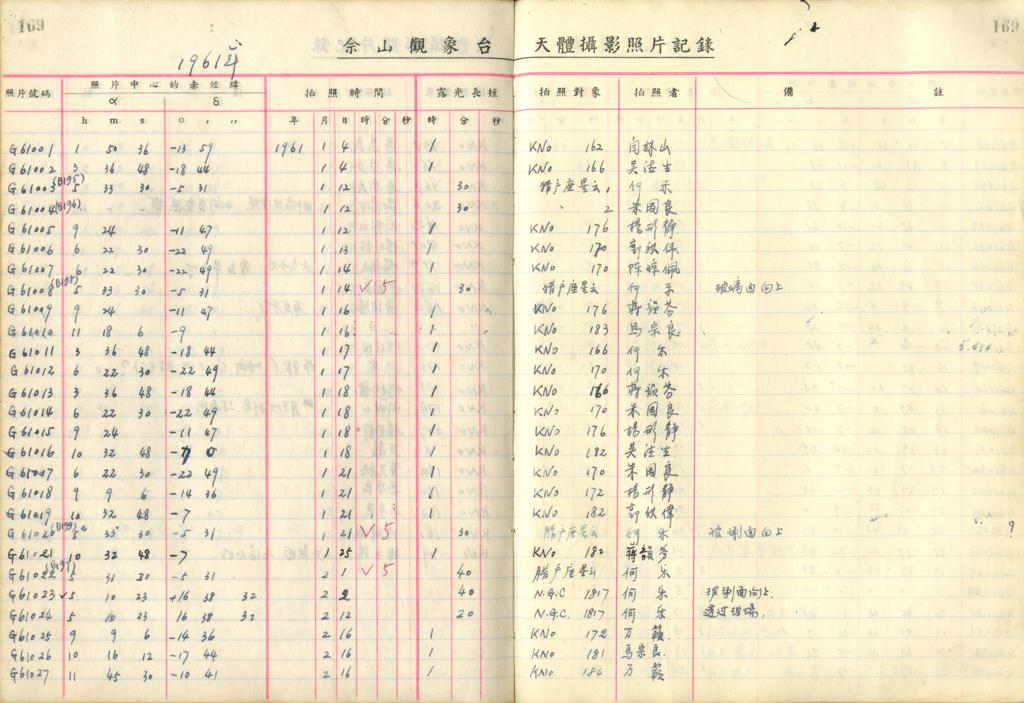 169
169
佘山觀象台 天體攝影照片記錄
1961年
照片號碼 照片中心的赤經緯 拍照時間 露光長短 拍照對象 拍照者 備 註
α δ
h m s ° ′ ″ 年 月 日 時 分 秒 時 分 秒
G61001 1 50 36 -13 59 1961 1 4 1 KNo 162 闫林山
G61002 3 36 48 -18 44 1 4 1 KNo 166
G61003 (B195) 5 33 30 -5 31 1 12 30 猎户座星云 1 何乐
G61004 (B196) 1 12 30 〃 2 朱国良
G61005 9 24 -11 47 1 12 1 KNo 176 楊彤靜
G61006 6 22 30 -22 49 1 13 1 KNo 170
G61007 6 22 30 -22 49 1 14 1 KNo 170
G61008 (B198) 5 33 30 -5 31 1 14 √5 30 猎户座星云 何乐 玻璃面向上
G61009 9 24 -11 47 1 16 1 KNo 176
G61010 11 18 6 -9 1 16 KNo 183 馬宗良
G61011 3 36 48 -18 44 1 17 1 KNo 166 何乐
G61012 6 22 30 -22 49 1 17 1 KNo 170 何乐
G61013 3 36 48 -18 44 1 18 1 KNo 166
G61014 6 22 30 -22 49 1 18 1 KNo 170 朱国良
G61015 9 24 -11 47 1 18 1 KNo 176 楊彤靜
G61016 10 32 48 -7 0 1 18 1 KNo 182
G61017 6 22 30 -22 49 1 21 1 KNo 170 朱国良
G61018 9 9 6 -14 36 1 21 1 KNo 172 楊彤靜
G61019 10 32 48 -7 1 21 1 KNo 182
G61020 (B199) 5 33 30 -5 31 1 21 √5 30 腊户座星云 何乐 玻璃面向上 ?
G61021 10 32 48 -7 1 25 1 KNo 182 蔣韻芬
G61022 (B197) 5 31 30 -5 31 2 1 √5 40 腊户座星云 何乐
G61023 √5 10 23 +16 38 32 2 2 40 N.G.C. 1817 何乐 玻璃面向上
G61024 5 10 23 16 38 32 2 12 20 N.G.C. 1817 何乐 透过玻璃.
G61025 9 9 6 -14 36 2 16 1 KNo 172 万籟
G61026 10 16 12 -17 44 2 16 1 KNo 181 馬宗良
G61027 11 45 30 -10 41 2 16 1 KNo 184 万籟